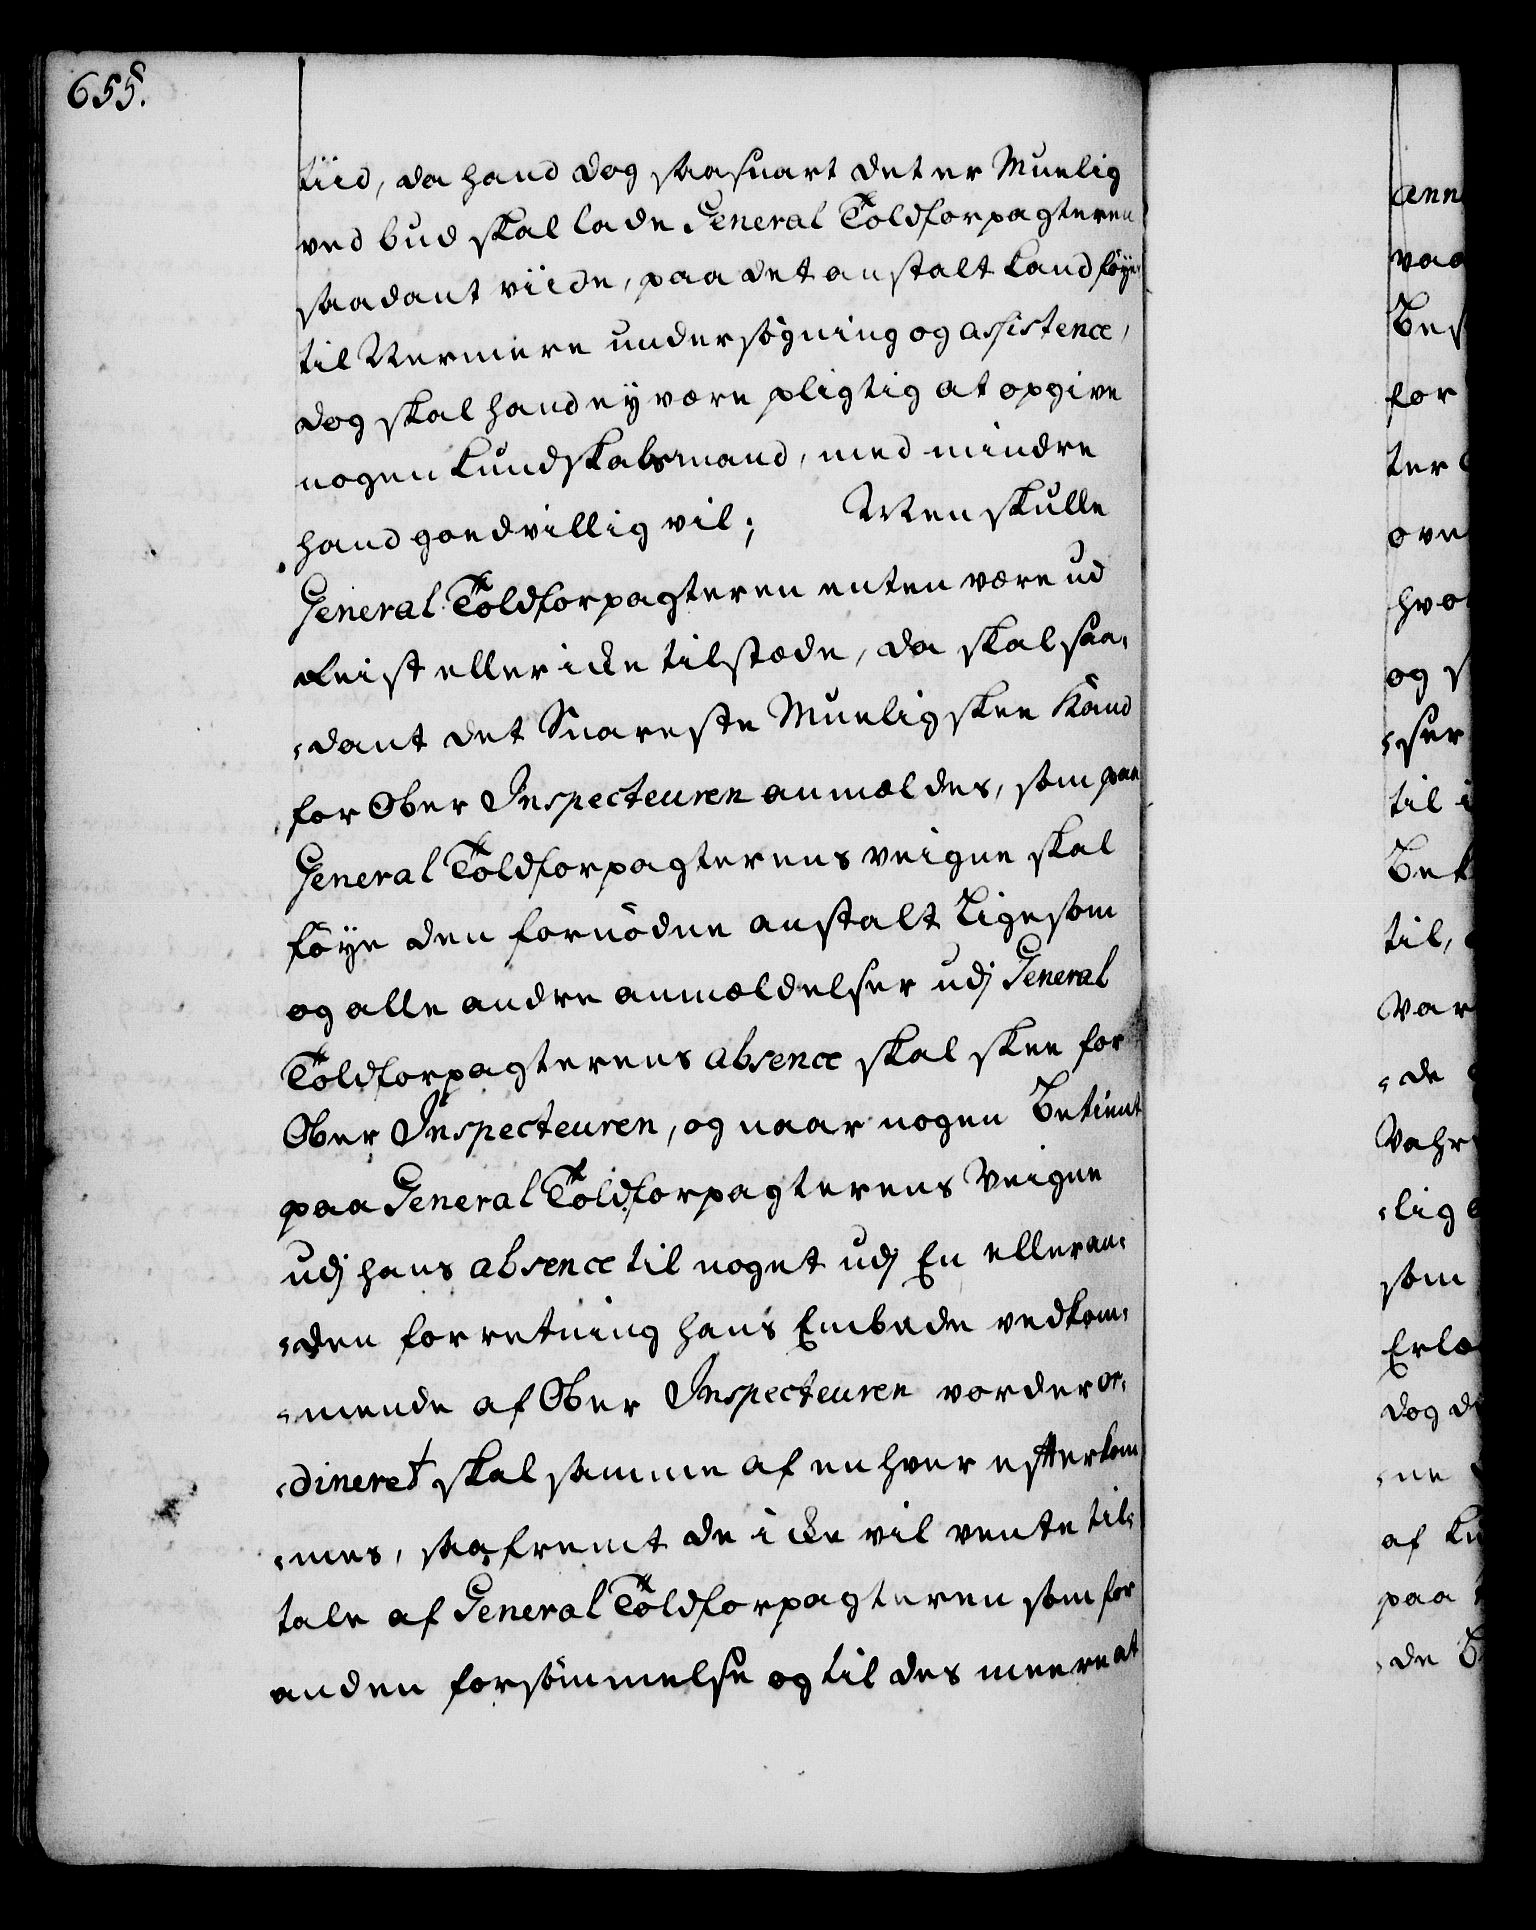 655.
tiid, da hand dog saasnart det er Muelig
ved bud skal lade General Toldforpagteren
saadant viide, paa det anstalt kand föye
til Nermere undersögning og assistence,
dog skal hand ey være pligtig at opgive
nogen kundskabsmand, med mindre
hand goedvillig vil; Men skulle
General Toldforpagteren enten være ud
Reist eller icke tilstæde, da skal saa¬
¬dant det Snareste Muelig skee kand
for Ober Inspecteuren anmældes, som paa
General Toldforpagterens veigne skal
föye den fornödne anstalt Ligesom
og alle andre anmældelser udj General
Toldforpagterens absence skal skee for
Ober Inspecteuren, og naar nogen Betient
paa General Toldforpagterens Veigne
udj hans absence til noget udj En eller an¬
¬den forretning hans Embede vedkom¬
¬mende af Ober Inspecteuren vorder or¬
¬dineret skal samme af enhver efterkom
¬mes, saafremt de icke vil vente til¬
tale af General Toldforpagteren som for
anden forsömmelse og til des meere at
ann
vaa
Bes
for
ter
ove
hvo
og s
¬ser
til i
Bek
til,
Var
¬de
Vahr
¬lig
som
Erlæ
dog d
¬ne
af ku
paa
¬de B